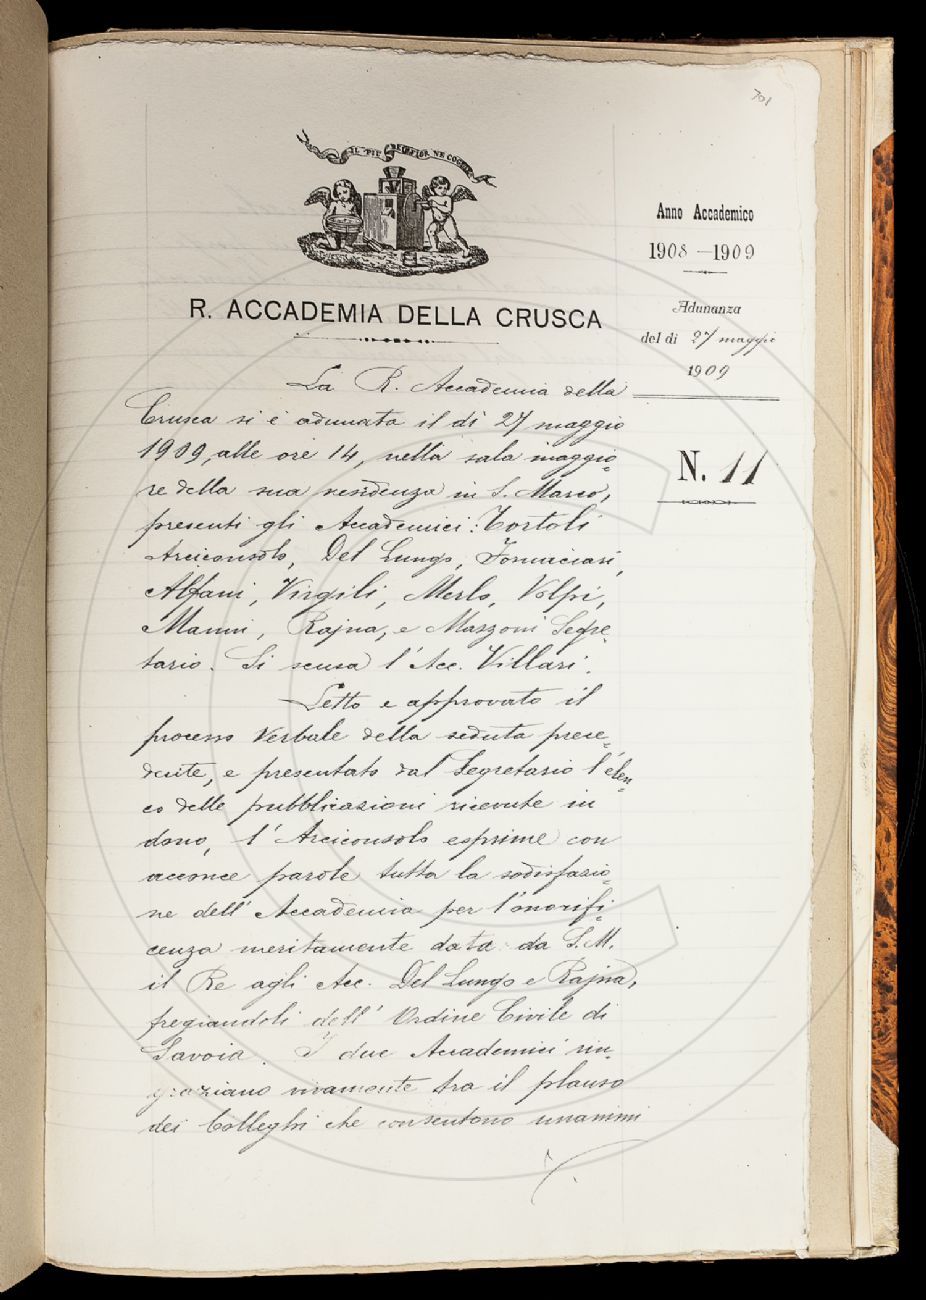 701
IL PIÙ BEL FIOR NE COGLIE
Anno Accademico
1908 — 1909
Adunanza
del dì 27 maggio
1909
N. 11
R. ACCADEMIA DELLA CRUSCA
La R. Accademia della
Crusca si è adunata il dì 27 maggio
1909, alle ore 14, nella sala maggio-
re della sua residenza in S. Marco,
presenti gli Accademici: Tortoli
Arciconsolo, Del Lungo, Fornaciari,
Alfani, Virgili, Merlo, Volpi,
Manni, Rajna, e Mazzoni Segre-
tario. Si scusa l'Acc. Villari.
Letto e approvato il
processo verbale della seduta prece-
dente, e presentato dal Segretario l'elen-
co delle pubblicazioni ricevute in
dono, l'Arciconsolo esprime con
acconce parole tutta la sodisfazio-
ne dell'Accademia per l'onorifi-
cenza meritamente data da S. M.
il Re agli Acc. Del Lungo e Rajna,
fregiandoli dell'Ordine Civile di
Savoia. I due Accademici rin-
graziano vivamente tra il plauso
dei Colleghi che consentono unanimi